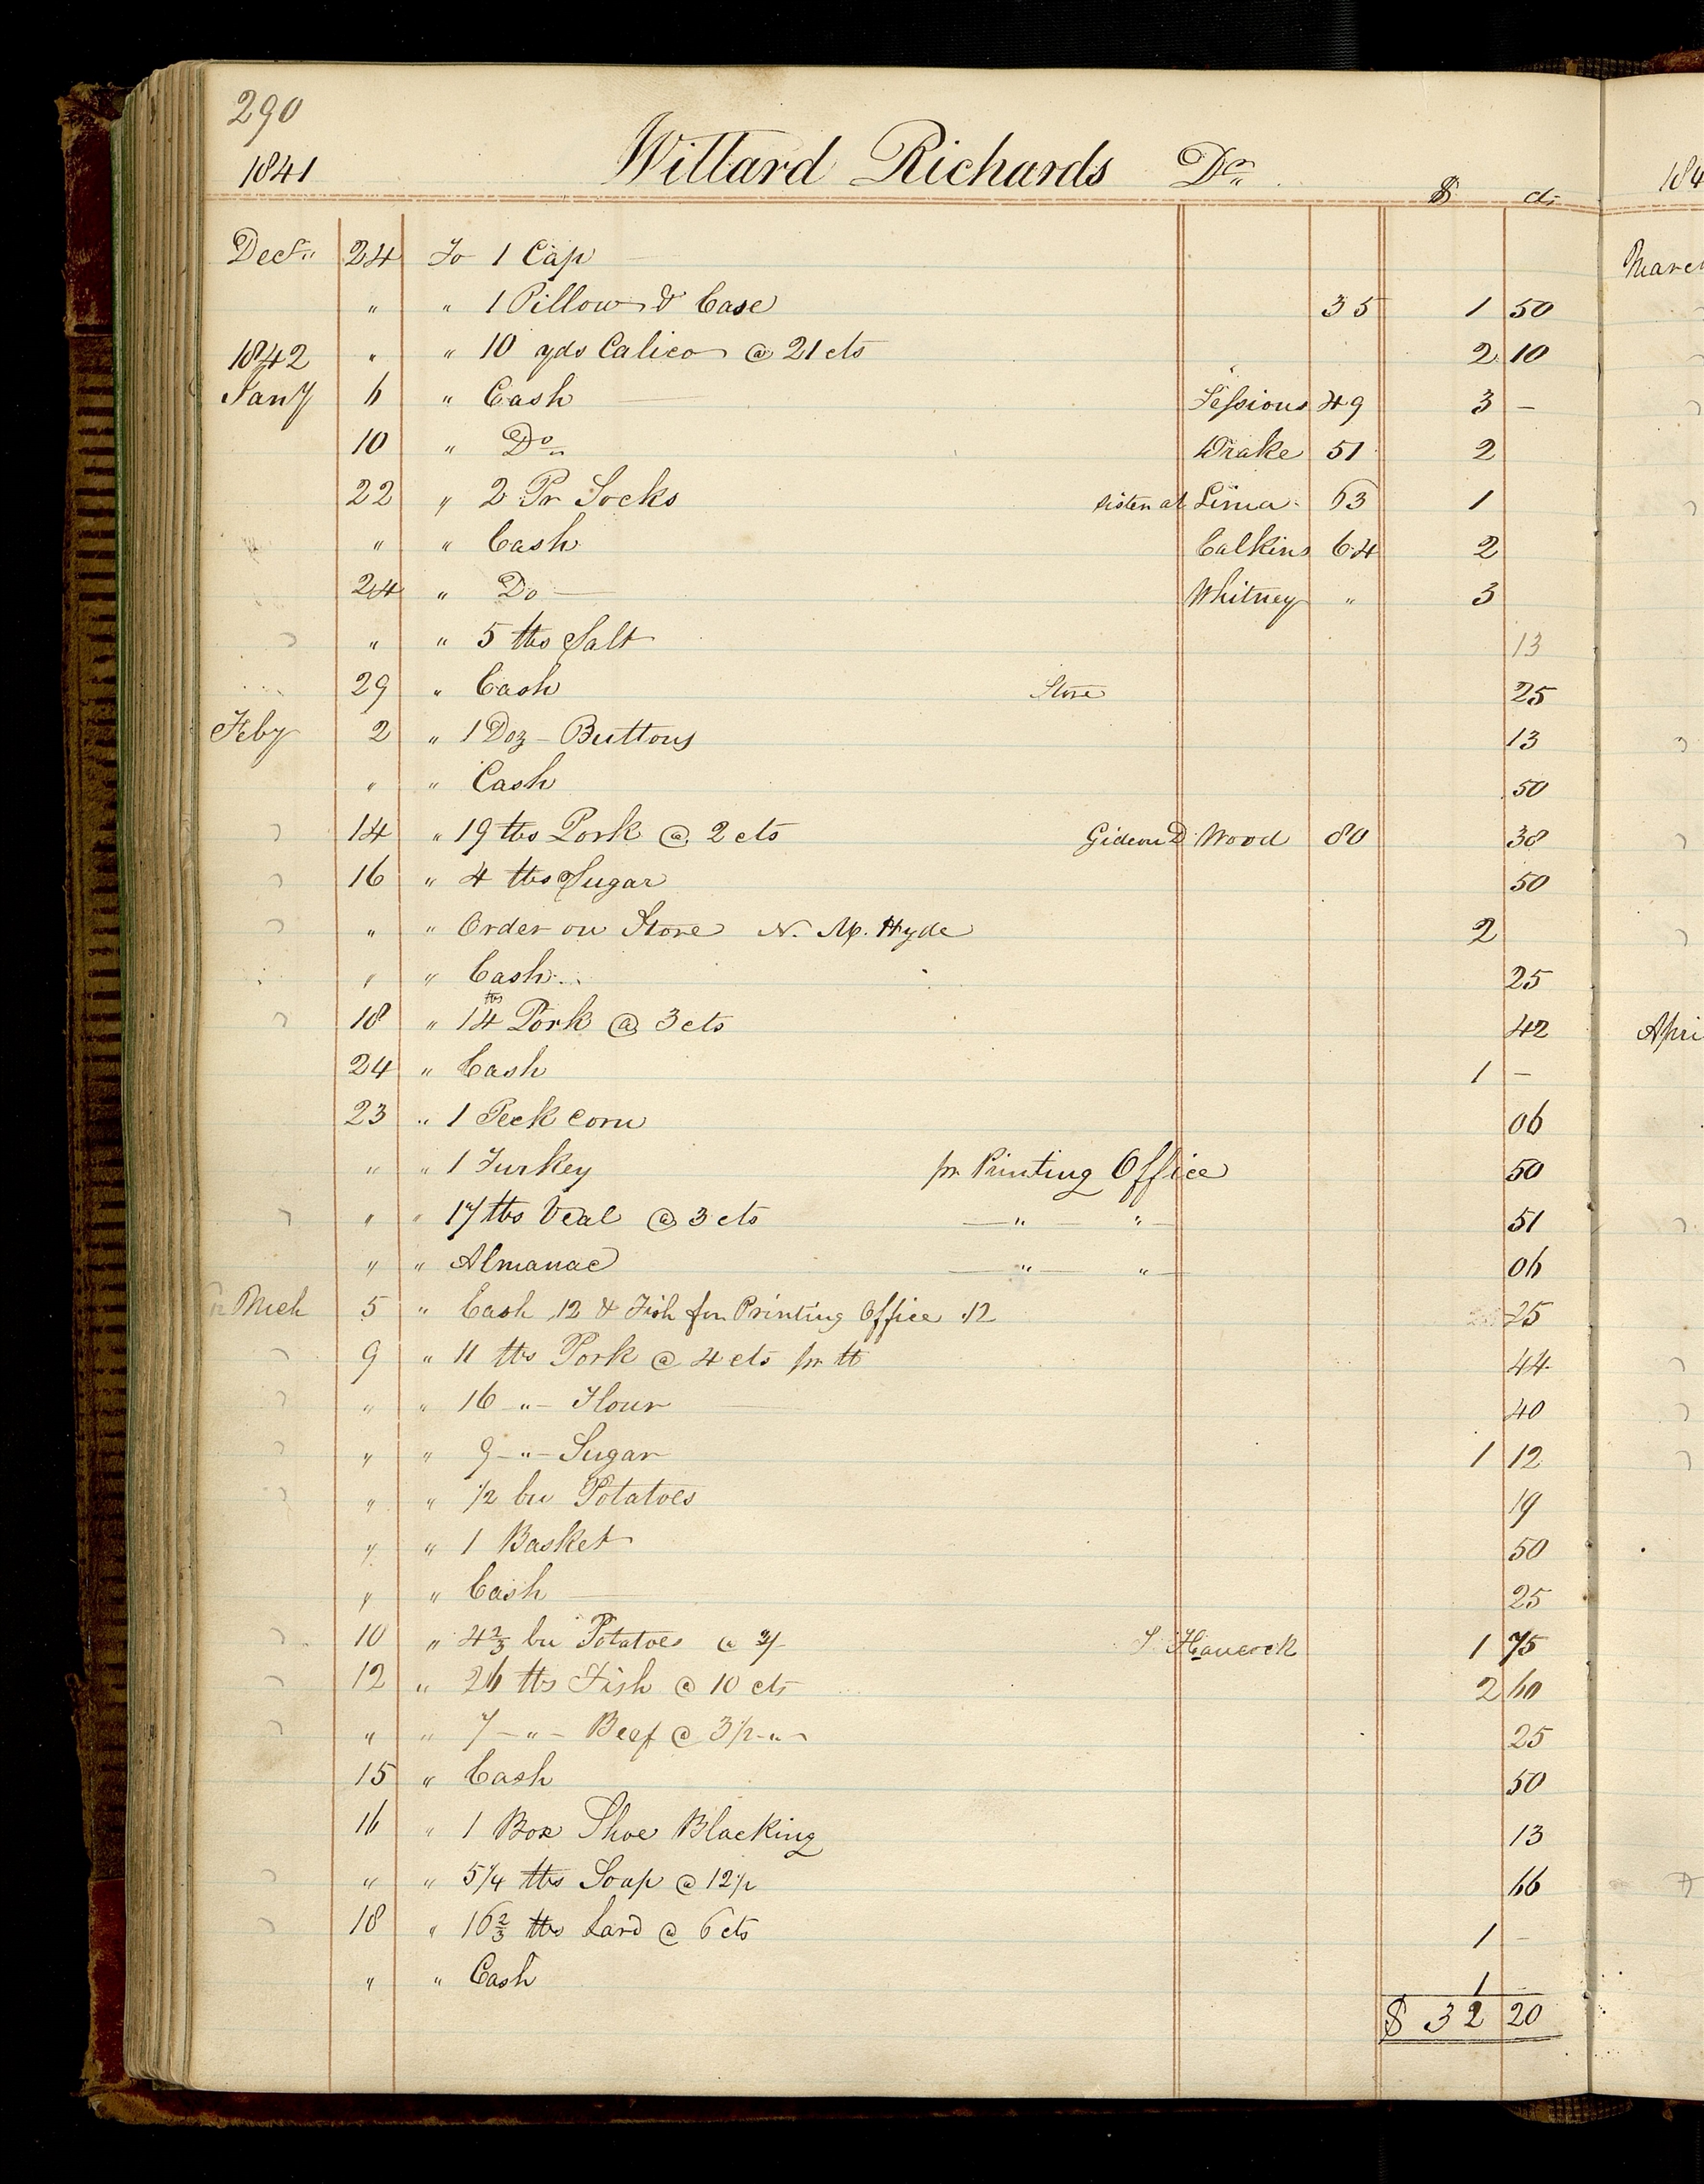 290
1841 Willard Richards Dr.. $ cts
Decr.. 24 To 1 Cap
" " 1 Pillow & Case 35 1 50
1842 " " 10 yds Calico @ 21 cts 2 10
Jany 6 " Cash Sessions 49 3 –
10 " Do Drake 51 2
22 " 2 Pr Socks sister at Lima 63 1
" " Cash Calkins 64 2
24 " Do Whitney " 3
" " 5 lbs Salt 13
29 " Cash Store 25
Feby 2 " 1 Doz – Buttons 13
" " Cash 50
14 " 19 lbs Pork @ 2 cts Gideon D Wood 80 38
16 " 4 lbs Sugar 50
" " Order on Store N. M. Hyde 2
" " Cash 25
18 " 14 lbs Pork @ 3 cts 42
24 " Cash 1 –
23 " 1 Peck corn 06
" " 1 Turkey pr. Printing Office 50
" " 17 lbs Veal @ 3 cts — " — " — 51
" " Almanac — " — " — 06
Mch 5 " Cash .12 & Fish for Printing Office .12 25
9 " 11 lbs Pork @ 4 cts pr lb 44
" " 16 " – Flour 40
" " 9 – " – Sugar 1 12
" " 1/2 bu Potatoes 19
" " 1 Basket 50
" " Cash 25
10 " 4 2/3 bu Potatoes @ 3/ Hancock 1 75
12 " 26 lbs Fish @ 10 cts 2 60
" " 7 – " – Beef @ 3 1/2 – " – 25
15 " Cash 50
16 " 1 Box Shoe Blacking 13
" " 5 1/4 lbs Soap @ 12 1/2 66
18 " 16 2/3 lbs Lard @ 6 cts 1 –
" " Cash 1 –
$ 32 20
184
March
Apri